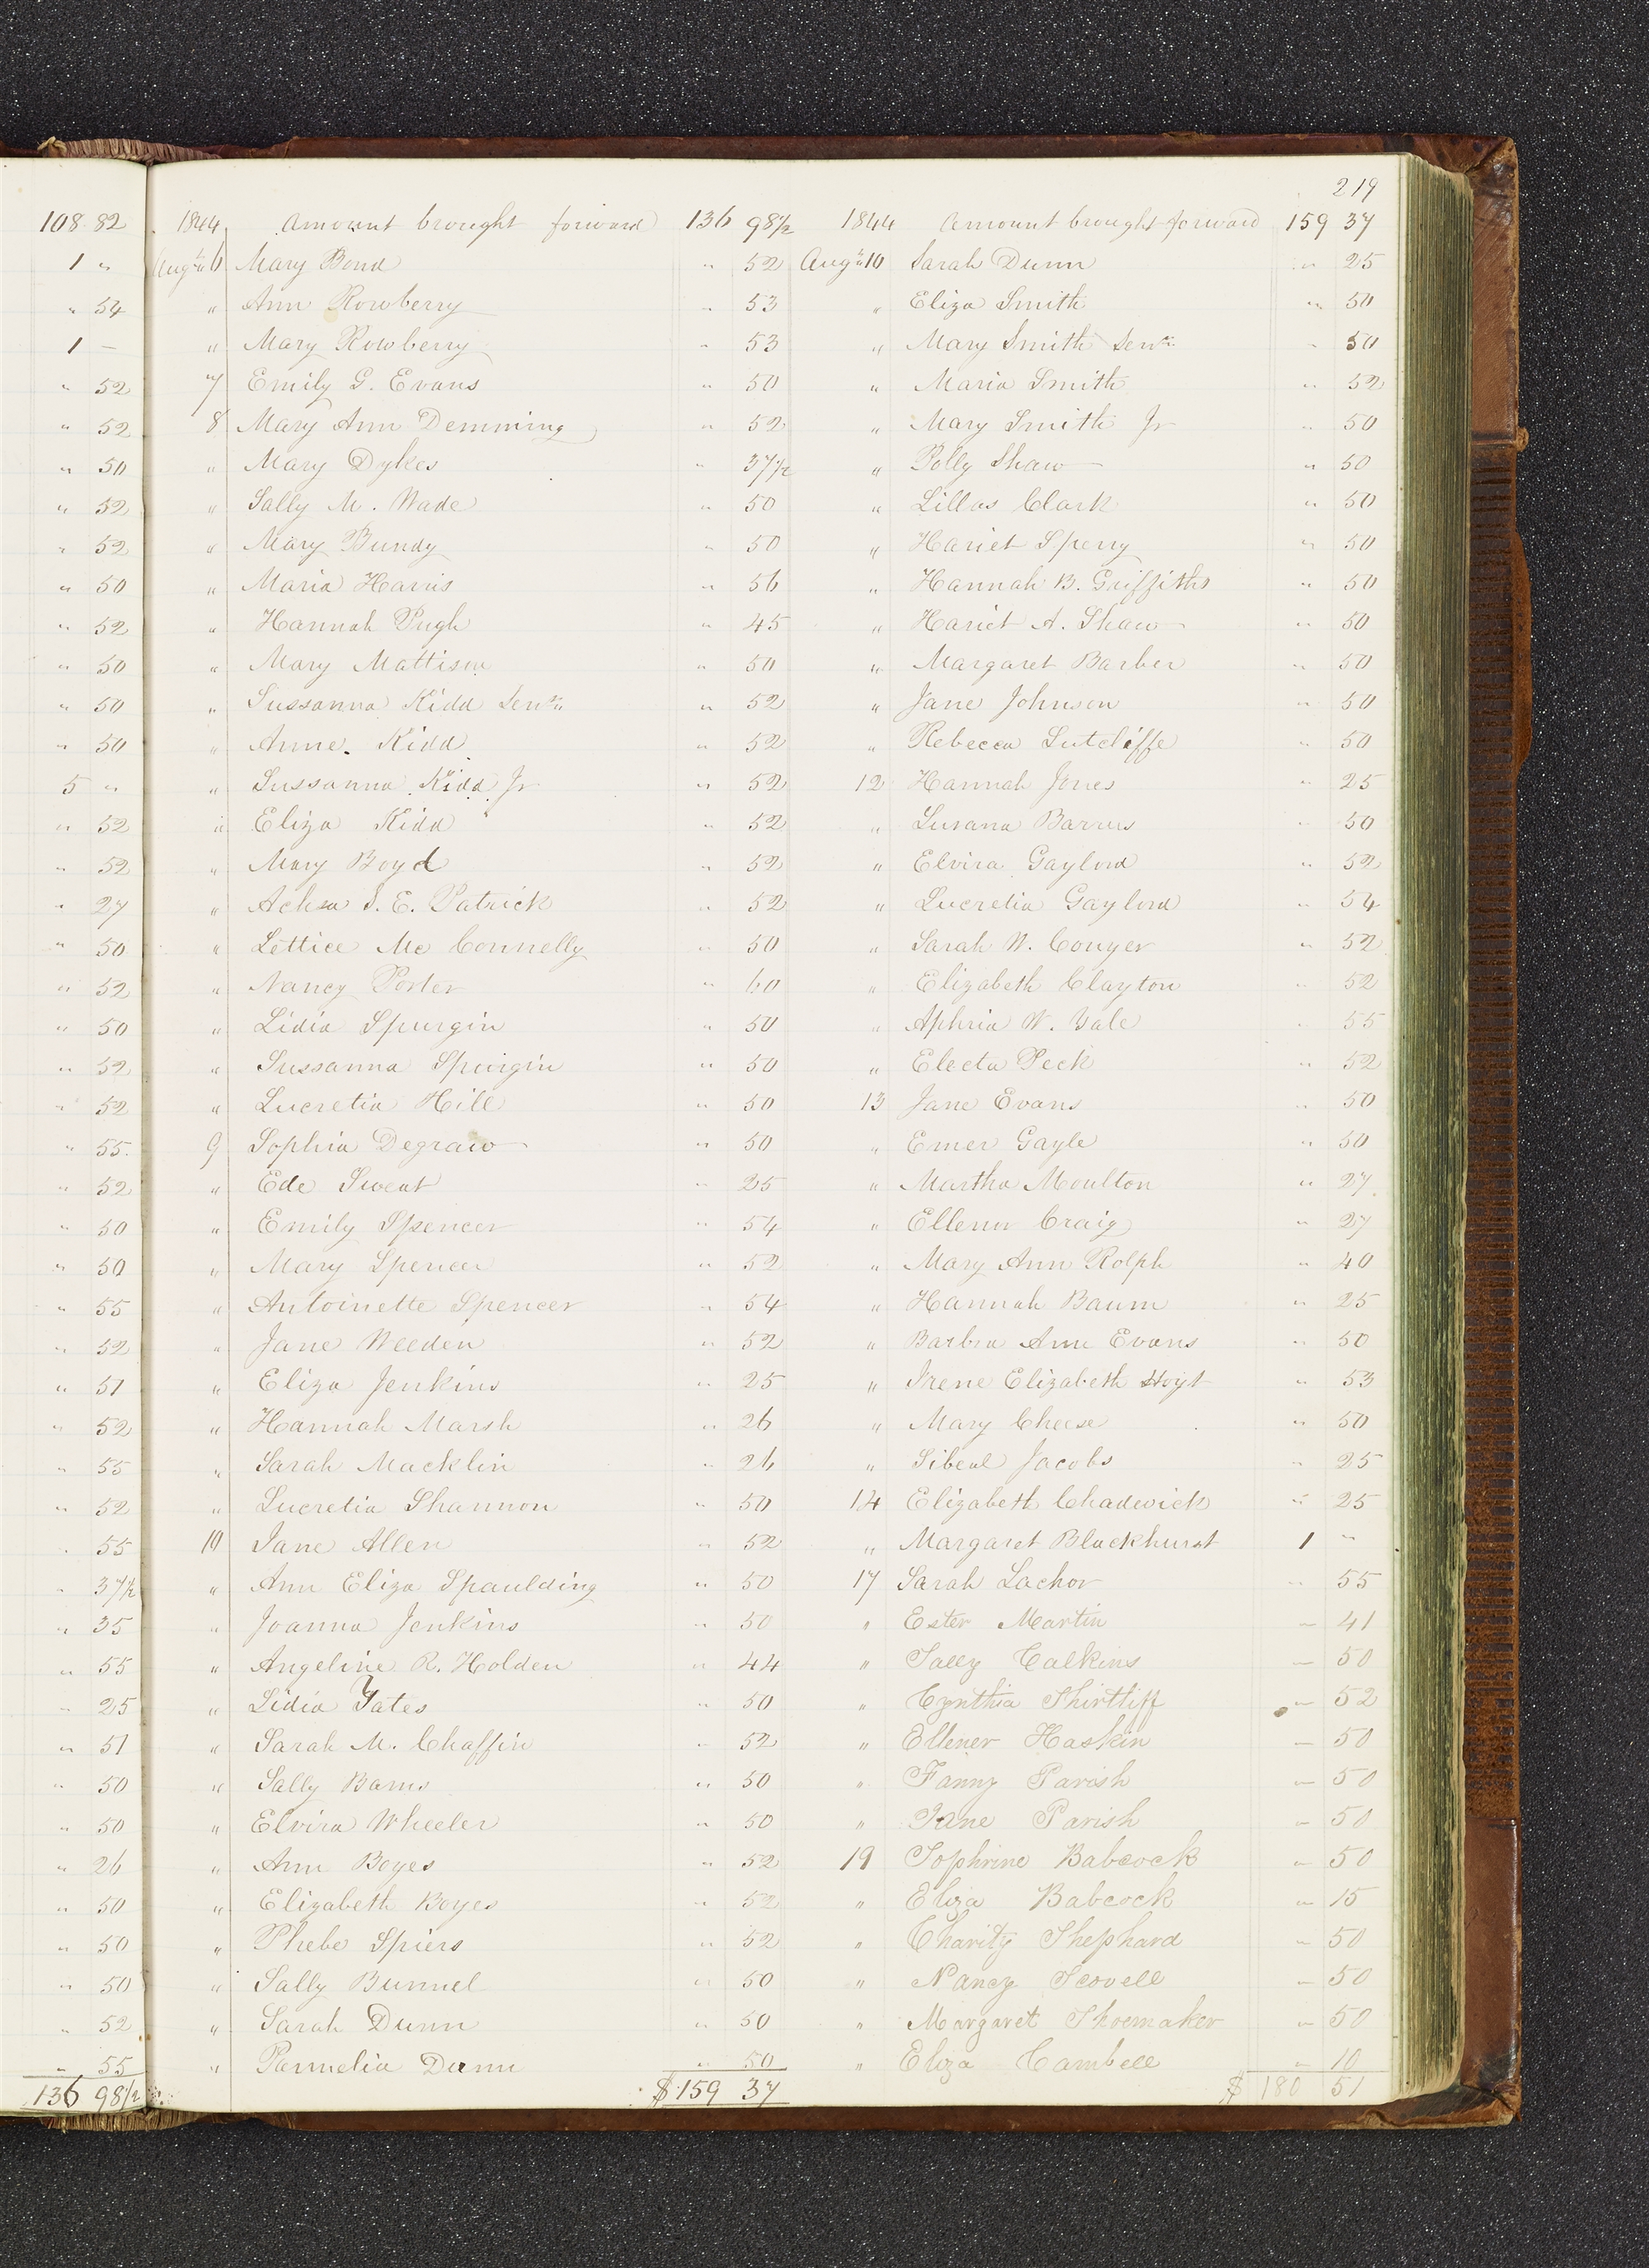 219
108 82
1 "
" 54
1 –
" 52
" 52
" 50
" 52
" 52
" 50
" 52
" 50
" 50
" 50
5 "
" 52
" 52
" 27
" 50
" 52
" 50
" 52
" 52
" 55
" 52
" 50
" 50
" 55
" 52
" 51
" 52
" 55
" 52
" 55
" 37½
" 35
" 55
" 25
" 51
" 50
" 50
" 26
" 50
" 50
" 50
" 52
" 55
136 98½
1844 Amount brought forward 136 98½
Augt 6 Mary Bond " 52
" Ann Rowberry " 53
" Mary Rowberry " 53
7 Emily G. Evans " 50
8 Mary Ann Demming " 52
" Mary Dykes " 37½
" Sally M. Wade " 50
" Mary Bundy " 50
" Maria Harris " 56
" Hannah Pugh " 45
" Mary Mattison " 50
" Sussanna Kidd Senr " 52
" Anne Kidd " 52
" Sussanna Kidd Jr " 52
" Eliza Kidd " 52
" Mary Boyd " 52
" Achsa S. E. Patrick " 52
" Lettice Mc Connelly " 50
" Nancy Porter " 60
" Lidia Spurgin " 50
" Sussanna Spurgin " 50
" Lucretia Hill " 50
9 Sophia Degraw " 50
" Ede Sweat " 25
" Emily Spencer " 54
" Mary Spencer " 52
" Antoinette Spencer " 54
" Jane Weeden " 52
" Eliza Jenkins " 25
" Hannah Marsh " 26
" Sarah Macklin " 26
" Lucretia Shannon " 50
10 Jane Allen " 52
" Ann Eliza Spaulding " 50
" Joanna Jenkins " 50
" Angeline R. Holden " 44
" Lidia Yates " 50
" Sarah M. Chaffin " 52
" Sally Barns " 50
" Elvira Wheeler " 50
" Ann Boyes " 52
" Elizabeth Boyes " 52
" Phebe Spiers " 52
" Sally Bunnel " 50
" Sarah Dunn " 50
" Parmelia Dunn " 50
$159 37
1844 Amount brought forward 159 37
Augt 10 Sarah Dunn " 25
" Eliza Smith " 50
" Mary Smith Senr " 50
" Maria Smith " 52
" Mary Smith Jr " 50
" Polly Shaw " 50
" Lillas Clark " 50
" Hariet Sperry " 50
" Hannah B. Griffiths " 50
" Hariet A. Shaw " 50
" Margaret Barber " 50
" Jane Johnson " 50
" Rebecca Sutcliffe " 50
12 Hannah Jones " 25
" Lurana Barrus " 50
" Elvira Gaylord " 52
" Lucretia Gaylord " 54
" Sarah W. Conyer " 52
" Elizabeth Clayton " 52
" Aphria W. Yale " 55
" Electa Peck " 52
13 Jane Evans " 50
" Emer Gayle " 50
" Martha Moulton " 27
" Ellenor Craig " 27
" Mary Ann Rolph " 40
" Hannah Baum " 25
" Barbra Ann Evans " 50
" Irene Elizabeth Hoyt " 53
" Mary Cheese " 50
" Sibeal Jacobs " 25
14 Elizabeth Chadwick " 25
" Margaret Blackhurst 1 "
17 Sarah Lachor " 55
" Ester Martin – 41
" Sally Calkins – 50
" Cynthia Shirtliff – 52
" Ellener Haskin – 50
" Fanny Parish – 50
" Jane Parish – 50
19 Sophrine Babcock – 50
" Eliza Babcock – 15
" Charity Shephard – 50
" Nancy Scovell – 50
" Margaret Shoemaker – 50
" Eliza Cambell " 10
$ 180 51